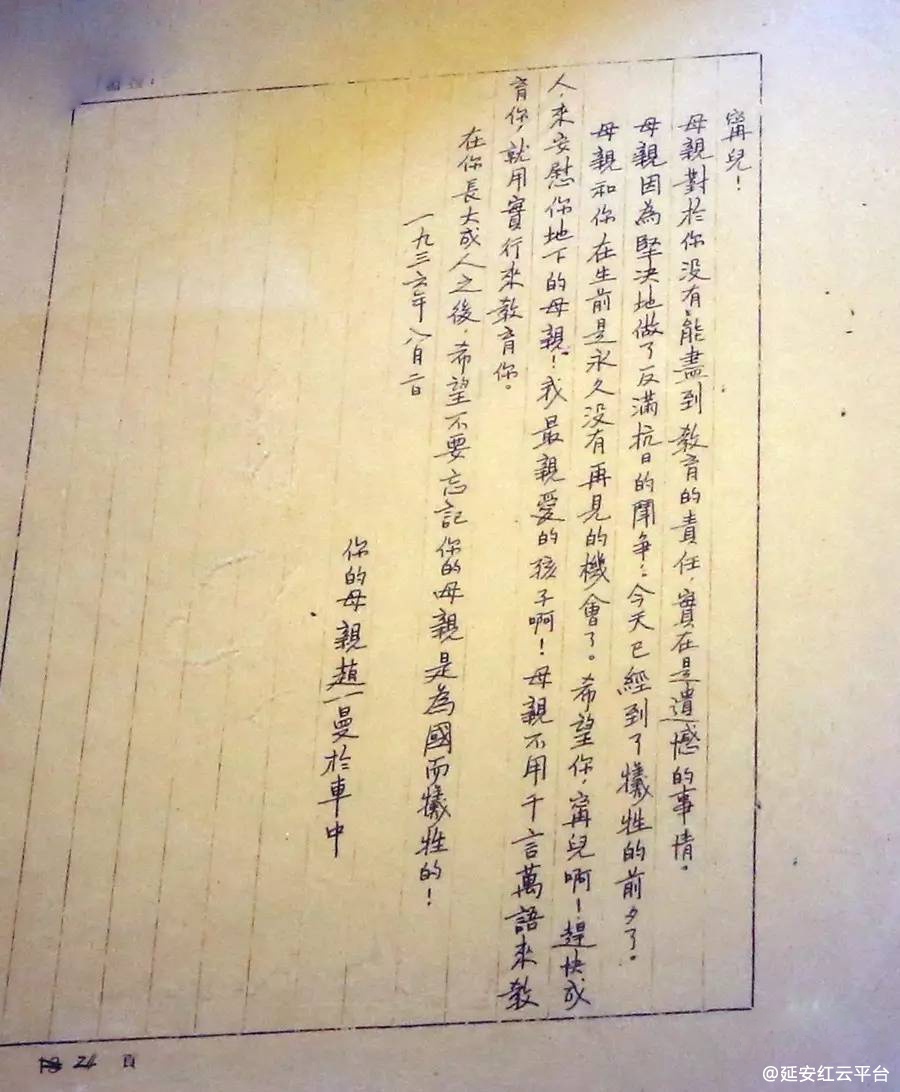 甯兒！
母親對於你沒有能盡到教育的責任，實在是遺憾的事情。
母親因為堅決地做了反滿抗日的鬥爭，今天已經到了犧牲的前夕了。
母親和你在生前是永久沒有再見的機會了。希望你，甯兒啊！趕快成
人，來安慰你地下的母親！我最親愛的孩子啊！母親不用千言萬語來教
育你，就用實行來教育你。
在你長大成人之後，希望不要忘記你的母親是為國而犧牲的！
一九三六年八月二日
你的母親趙一曼於車中
24 頁
@延安红云平台